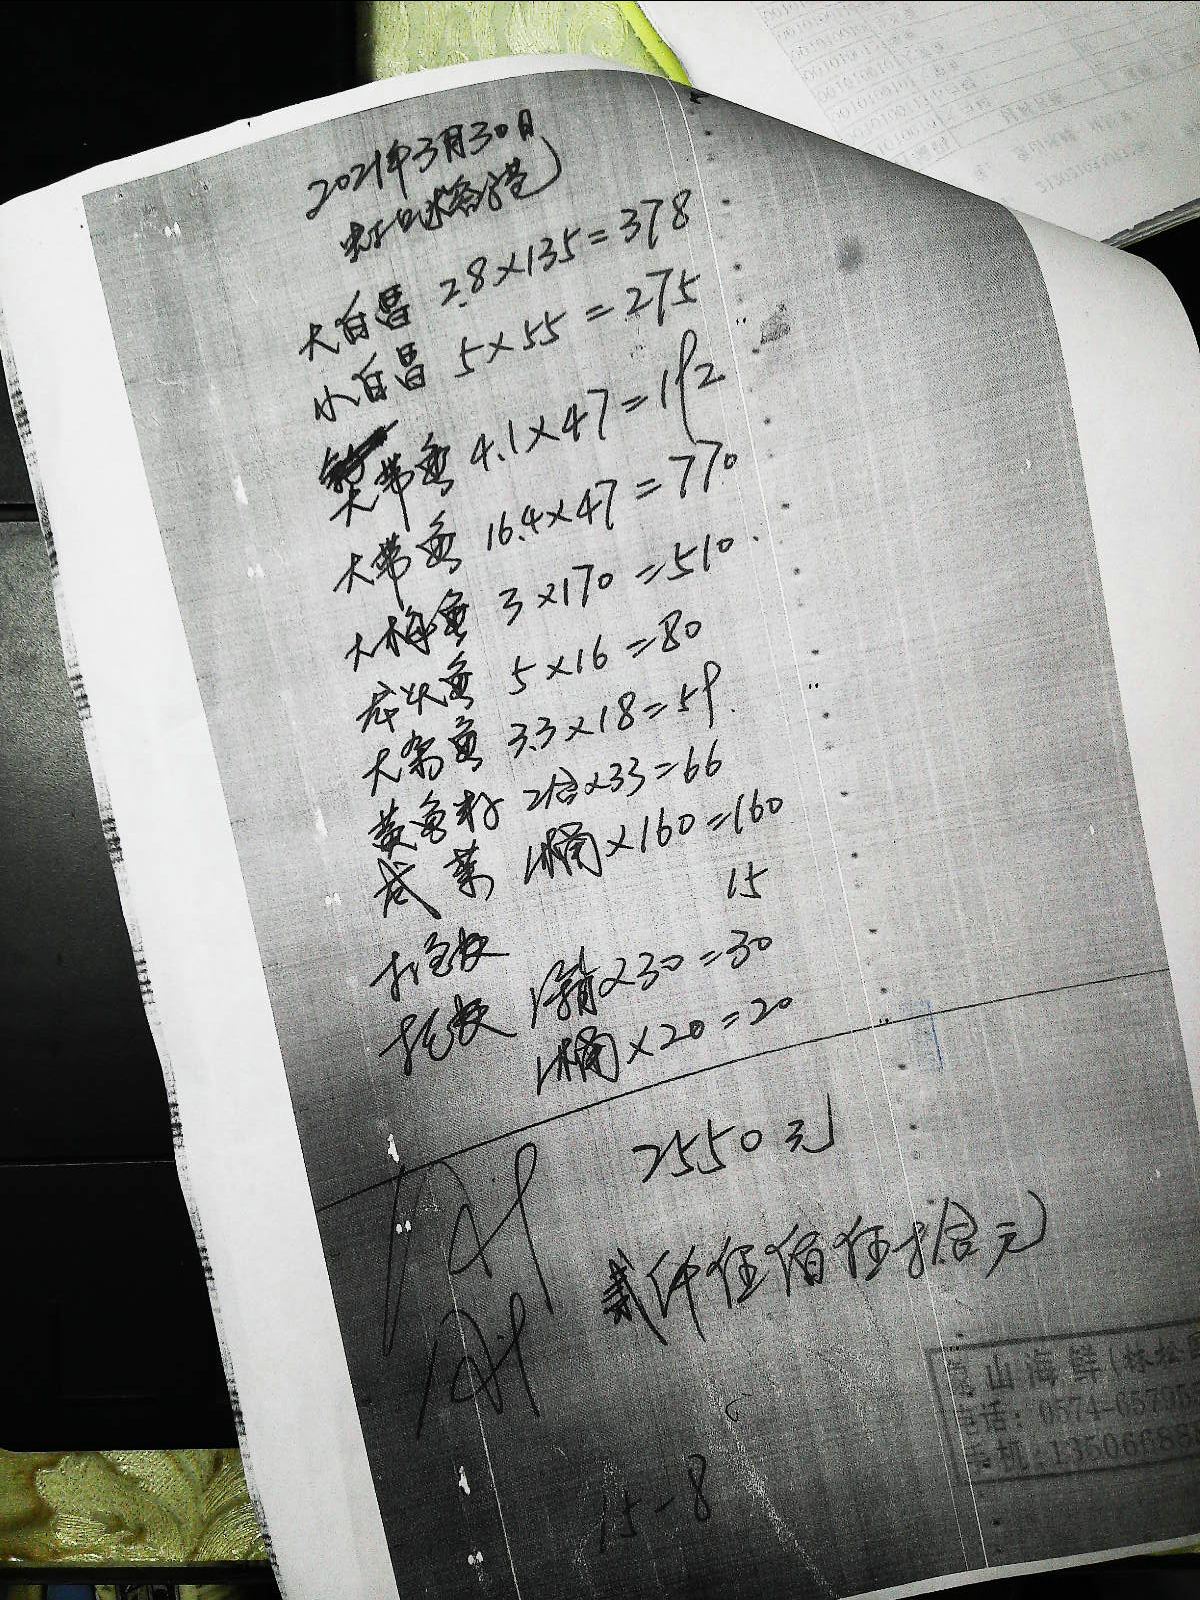 2021年3月30日
大白昌 2.8×135=378
小白昌 5×55=275
大带鱼 4.1×47=192
大带鱼 16.4×47=770
大梅鱼 3×170=510
龙头鱼 5×16=80
大 鱼 3.3×18=59
黄鱼籽 2合×33=66
咸菜 1桶×160=160
15
1箱×30=30
1桶×20=20
2550元
贰仟伍佰伍拾元
山海鲜(林松
电话: 0574-65795
手机:13506688
15-8